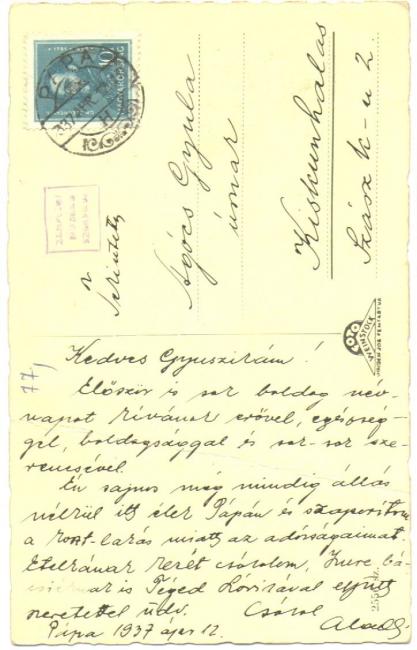 PÁPA
937 ÁPR
10
MAGYARORSZÁG
Ngócs Gyula
úrnak
Kiskunhalas
Szász K-u 2.
FOTO
WEINSTOCK
77,
Kedves Gyuszikám!
Először is sok boldog név-
napot kívánok erővel, egészség-
gel, boldogsággal és sok-sok sze-
rencsével.
Én sajnos még mindig állás
nélkül itt élek Pápán és szaporítom
a koszt-lakás miatt az adósságaimat.
Etelkának kezét csókolom, Imre bá-
is Téged Lórikával együtt
szeretettel üdv.
Csókol
Pápa 1937 ápr 12.